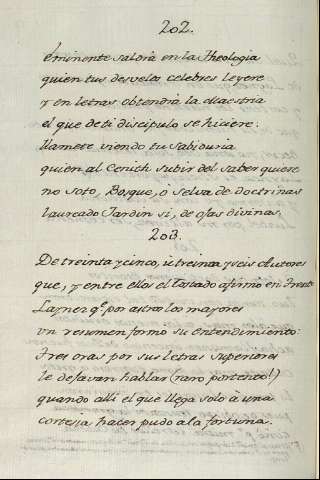 202.
eminente saldrà en la Theologia
quien tus desvelos celebres leyere
y en letras obtendrà la Maestria
el que de ti discipulo se hiciere:
llamete viendo tu Sabiduria
quien al Cenith subir del saber quiere
no soto, Bosque, ò selva de doctrinas
laureado Jardin si, de osas divinas.
203.
De treinta y cinco, ù treinta y seis Autores
que, y entre ellos el tostado afirmò en Trento
Laynez q.e por astros los mayores
vn resumen formò su entendimiento:
Tres oras por sus letras superiores
le dejavan hablar (raro portento!)
quando alli el que llega solo à una
cortesia hacer pudo a la fortuna.